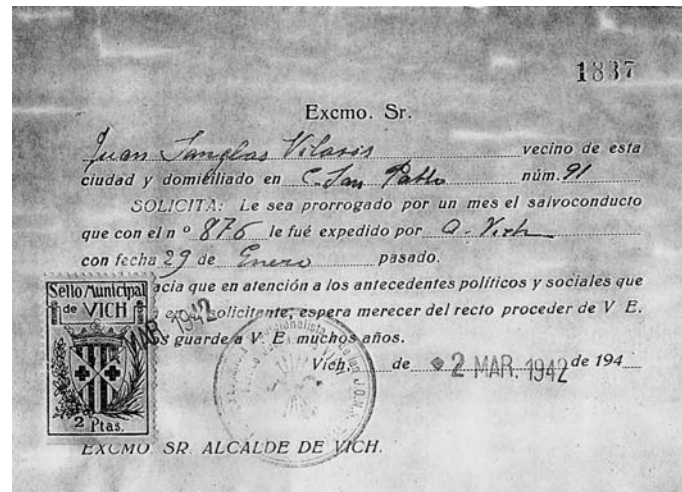 1837
Excmo. Sr.
Juan Sanglas Vilasis vecino de esta
ciudad y domiciliado en C. San Pablo núm. 91
SOLICITA: Le sea prorrogado por un mes el salvoconducto
que con el nº 876 le fué expedido por A. Vich
con fecha 29 de Enero pasado.
acia que en atención a los antecedentes políticos y sociales que
solicitante, espera merecer del recto proceder de V E.
s guarde a V. E. muchos años.
Vich, de 2 MAR. 1942 de 194
EXCMO SR. ALCALDE DE VICH.
Sello Municipal
de VICH
MAR. 1942
2 Ptas.